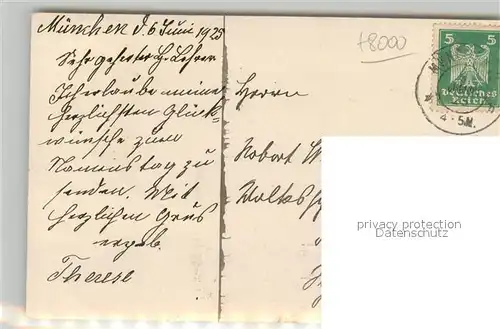 München d. 6 Juni 1925
Sehr geehrter H. Lehrer
Ich erlaube meine
herzlichsten Glück-
wünsche zum
Namenstag zu
senden. Mit
herzlichen Grus
ergeb.
Therese
+8000
5 5
Deutsches
Reich
4-5N.
Herrn
Robert
privacy protection
Datenschutz